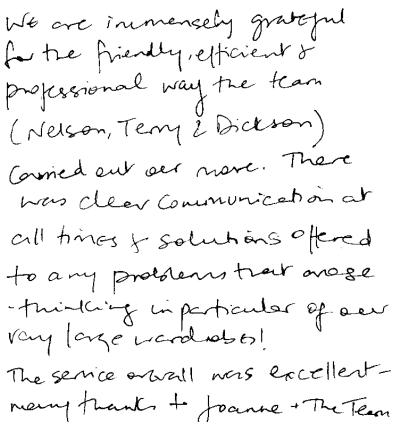 We are immensely grateful
for the friendly, efficient &
professional way the team
(Nelson, Terry & Dickson)
carried out our move. There
was clear communication at
all times & solutions offered
to any problems that arose
- thinking in particular of our
very large wardrobes!
The service overall was excellent -
many thanks to Joanne + The Team